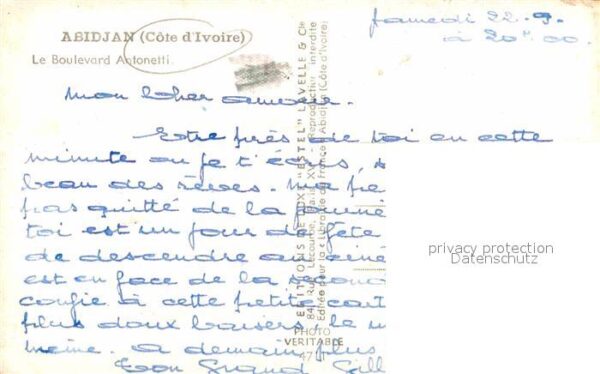 ABIDJAN (Côte d'Ivoire)
Le Boulevard Antonetti
Samedi 22.9.
à 20H.00
Mon Cher amour.
Etre près de toi en cette
minute où je t'écris,
beau des rêves. Ma
pas quitté de la
toi est un jour de fête
de descendre au
est en face de la
confie à cette petite
plus doux baisers, le
meme. a demain plus
Ton Grand
EDITIONS DE LUXE "ESTEL" LAVELLE & Cie
84, Rue Lecourbe, Paris XV - Reproduction interdite
Editée pour la Librairie de France, Abidjan (Côte d'Ivoire)
PHOTO
VERITABLE
privacy protection
Datenschutz